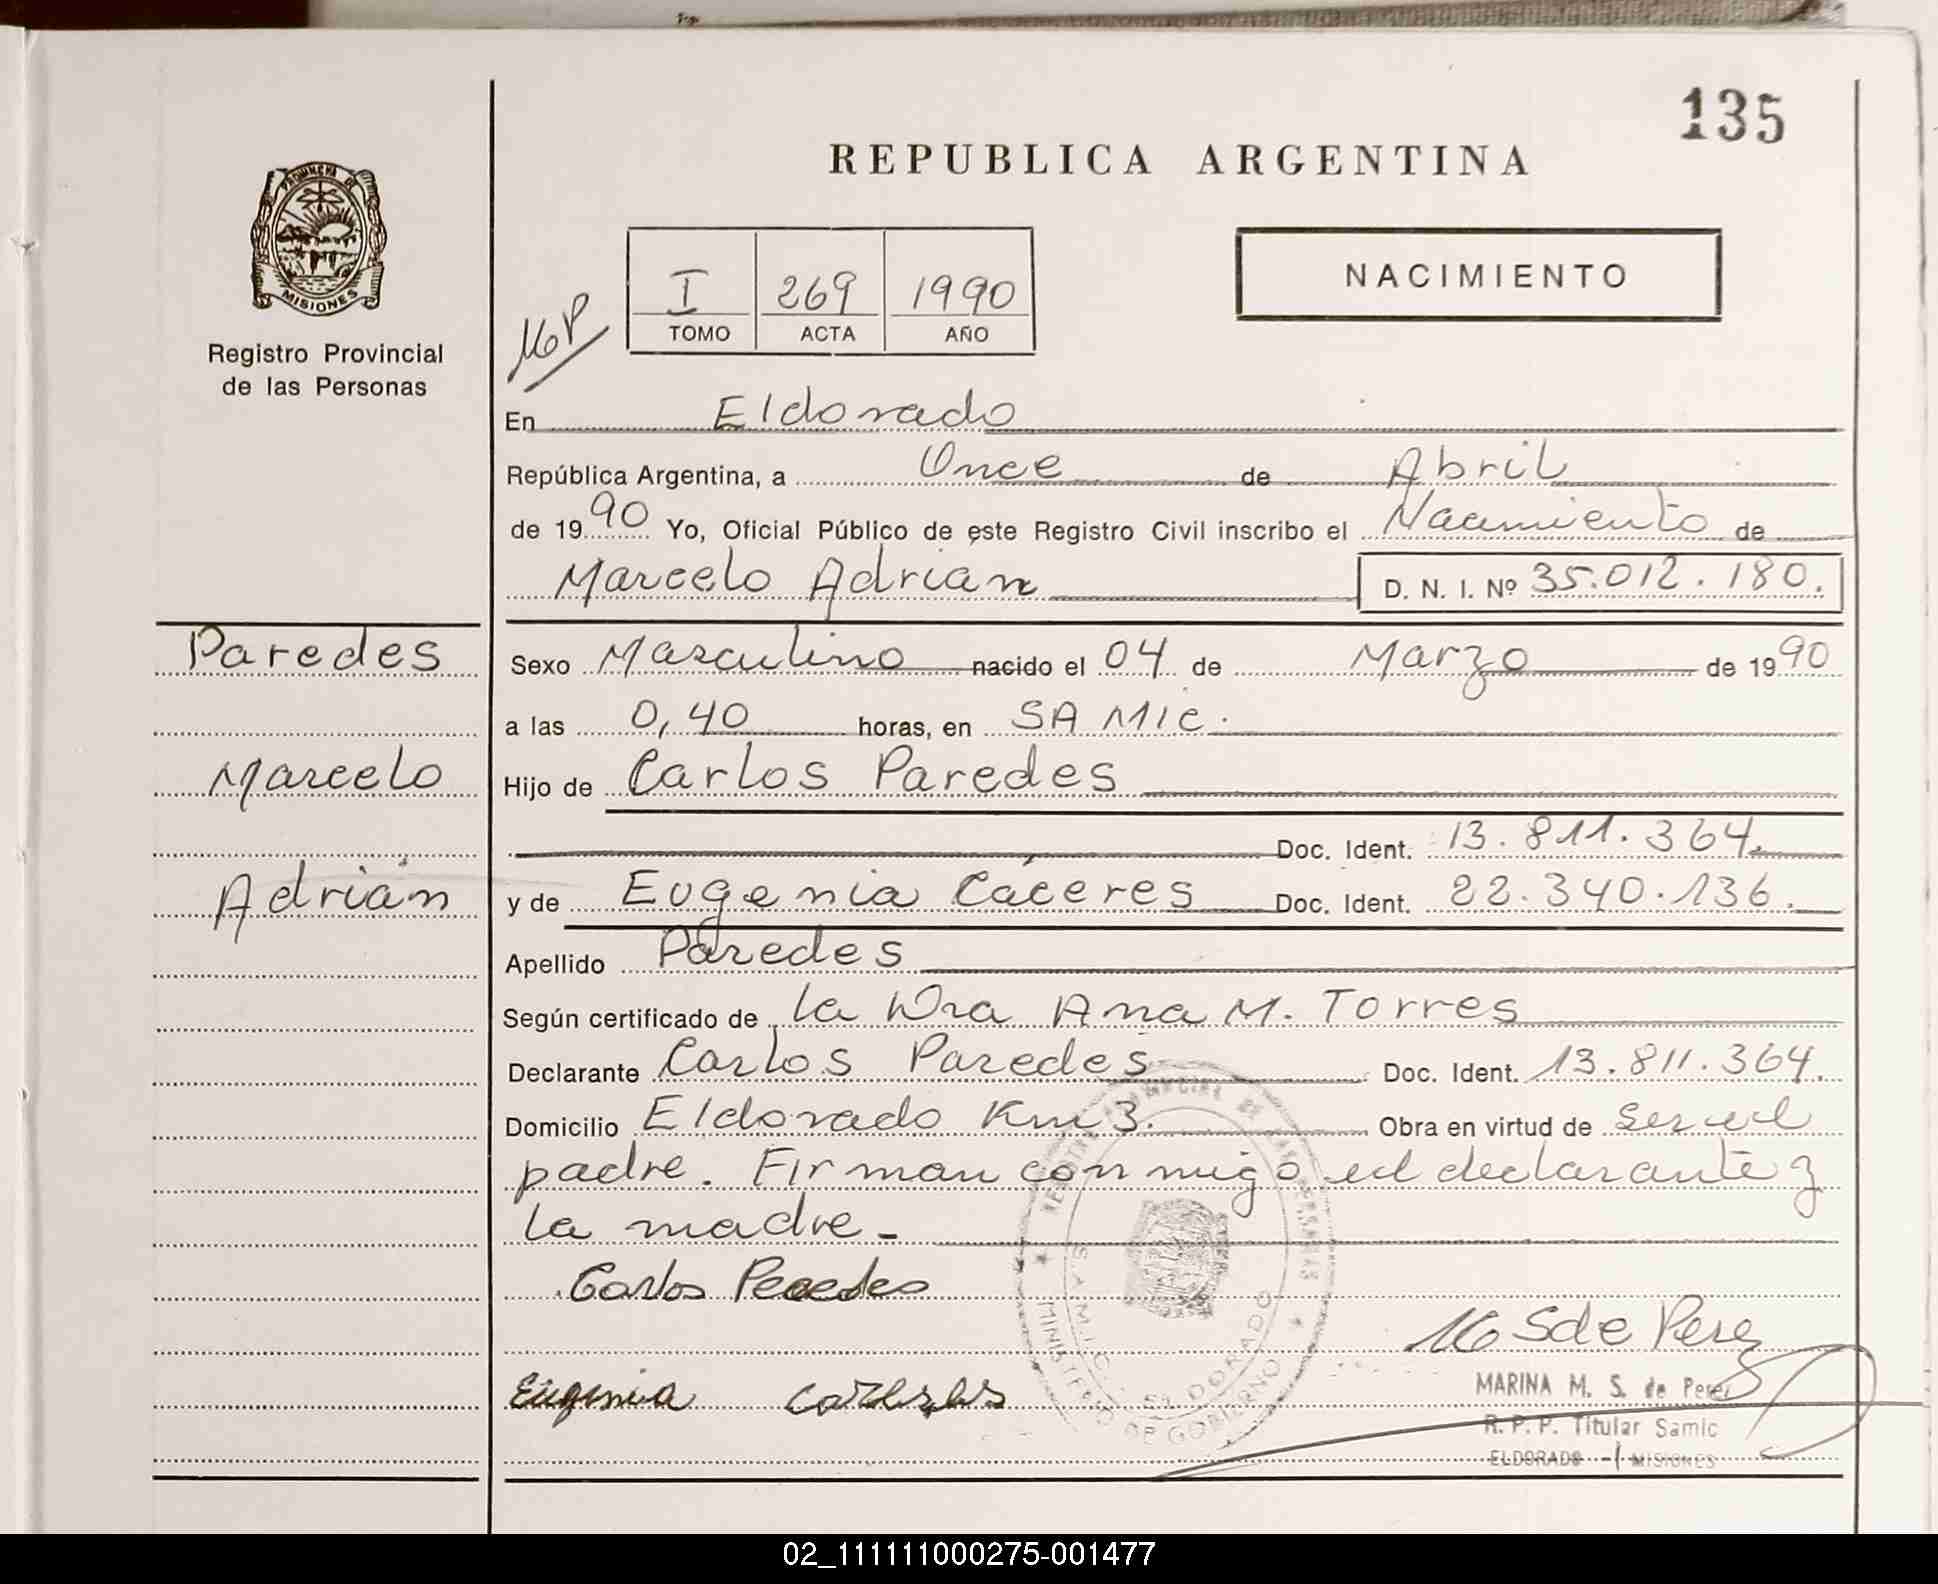 135
REPUBLICA ARGENTINA
PROVINCIA DE
MISIONES
Registro Provincial
de las Personas
I 269 1990
TOMO ACTA AÑO
NACIMIENTO
En Eldorado
República Argentina, a Once de Abril
de 1990 Yo, Oficial Público de este Registro Civil inscribo el Nacimiento de
Marcelo Adrián D. N. I. Nº 35.012.180.
Paredes
Marcelo
Adrián
Sexo Masculino nacido el 04 de Marzo de 1990
a las 0,40 horas, en SAMIC.
Hijo de Carlos Paredes
Doc. Ident. 13.811.364.
y de Eugenia Cáceres Doc. Ident. 22.340.136.
Apellido Paredes
Según certificado de la Dra Ana M. Torres
Declarante Carlos Paredes Doc. Ident. 13.811.364.
Domicilio Eldorado Km 3. Obra en virtud de ser el
padre. Firman conmigo el declarante y
la madre.-
Carlos Peredes
Eugenia
REGISTRO PROVINCIAL DE LAS PERSONAS
S.A.M.I.C. ELDORADO
MINISTERIO DE GOBIERNO
S de Perez
MARINA M. S. de Perez
R. P. P. Titular Samic
ELDORADO - MISIONES
02_111111000275-001477